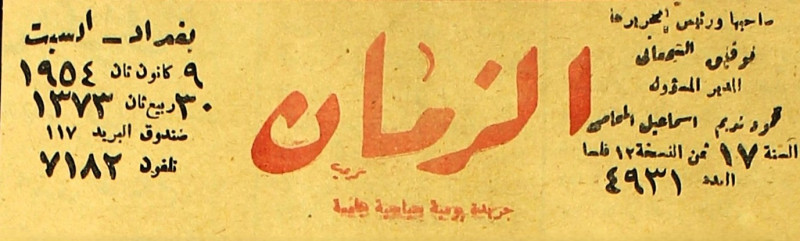 صاحبها ورئيس تحريرها
توفيق السمعاني
المدير المسؤول
محمود نديم اسماعيل المحامي
السنة ١٧ ثمن النسخة ١٢ فلسا
العدد ٤٩٣١
الزمان
جريدة يومية سياسية عامة
بغداد - السبت
٩ كانون ثان ١٩٥٤
٣٠ ربيع ثان ١٣٧٣
صندوق البريد ١١٧
تلفون ٧١٨٢